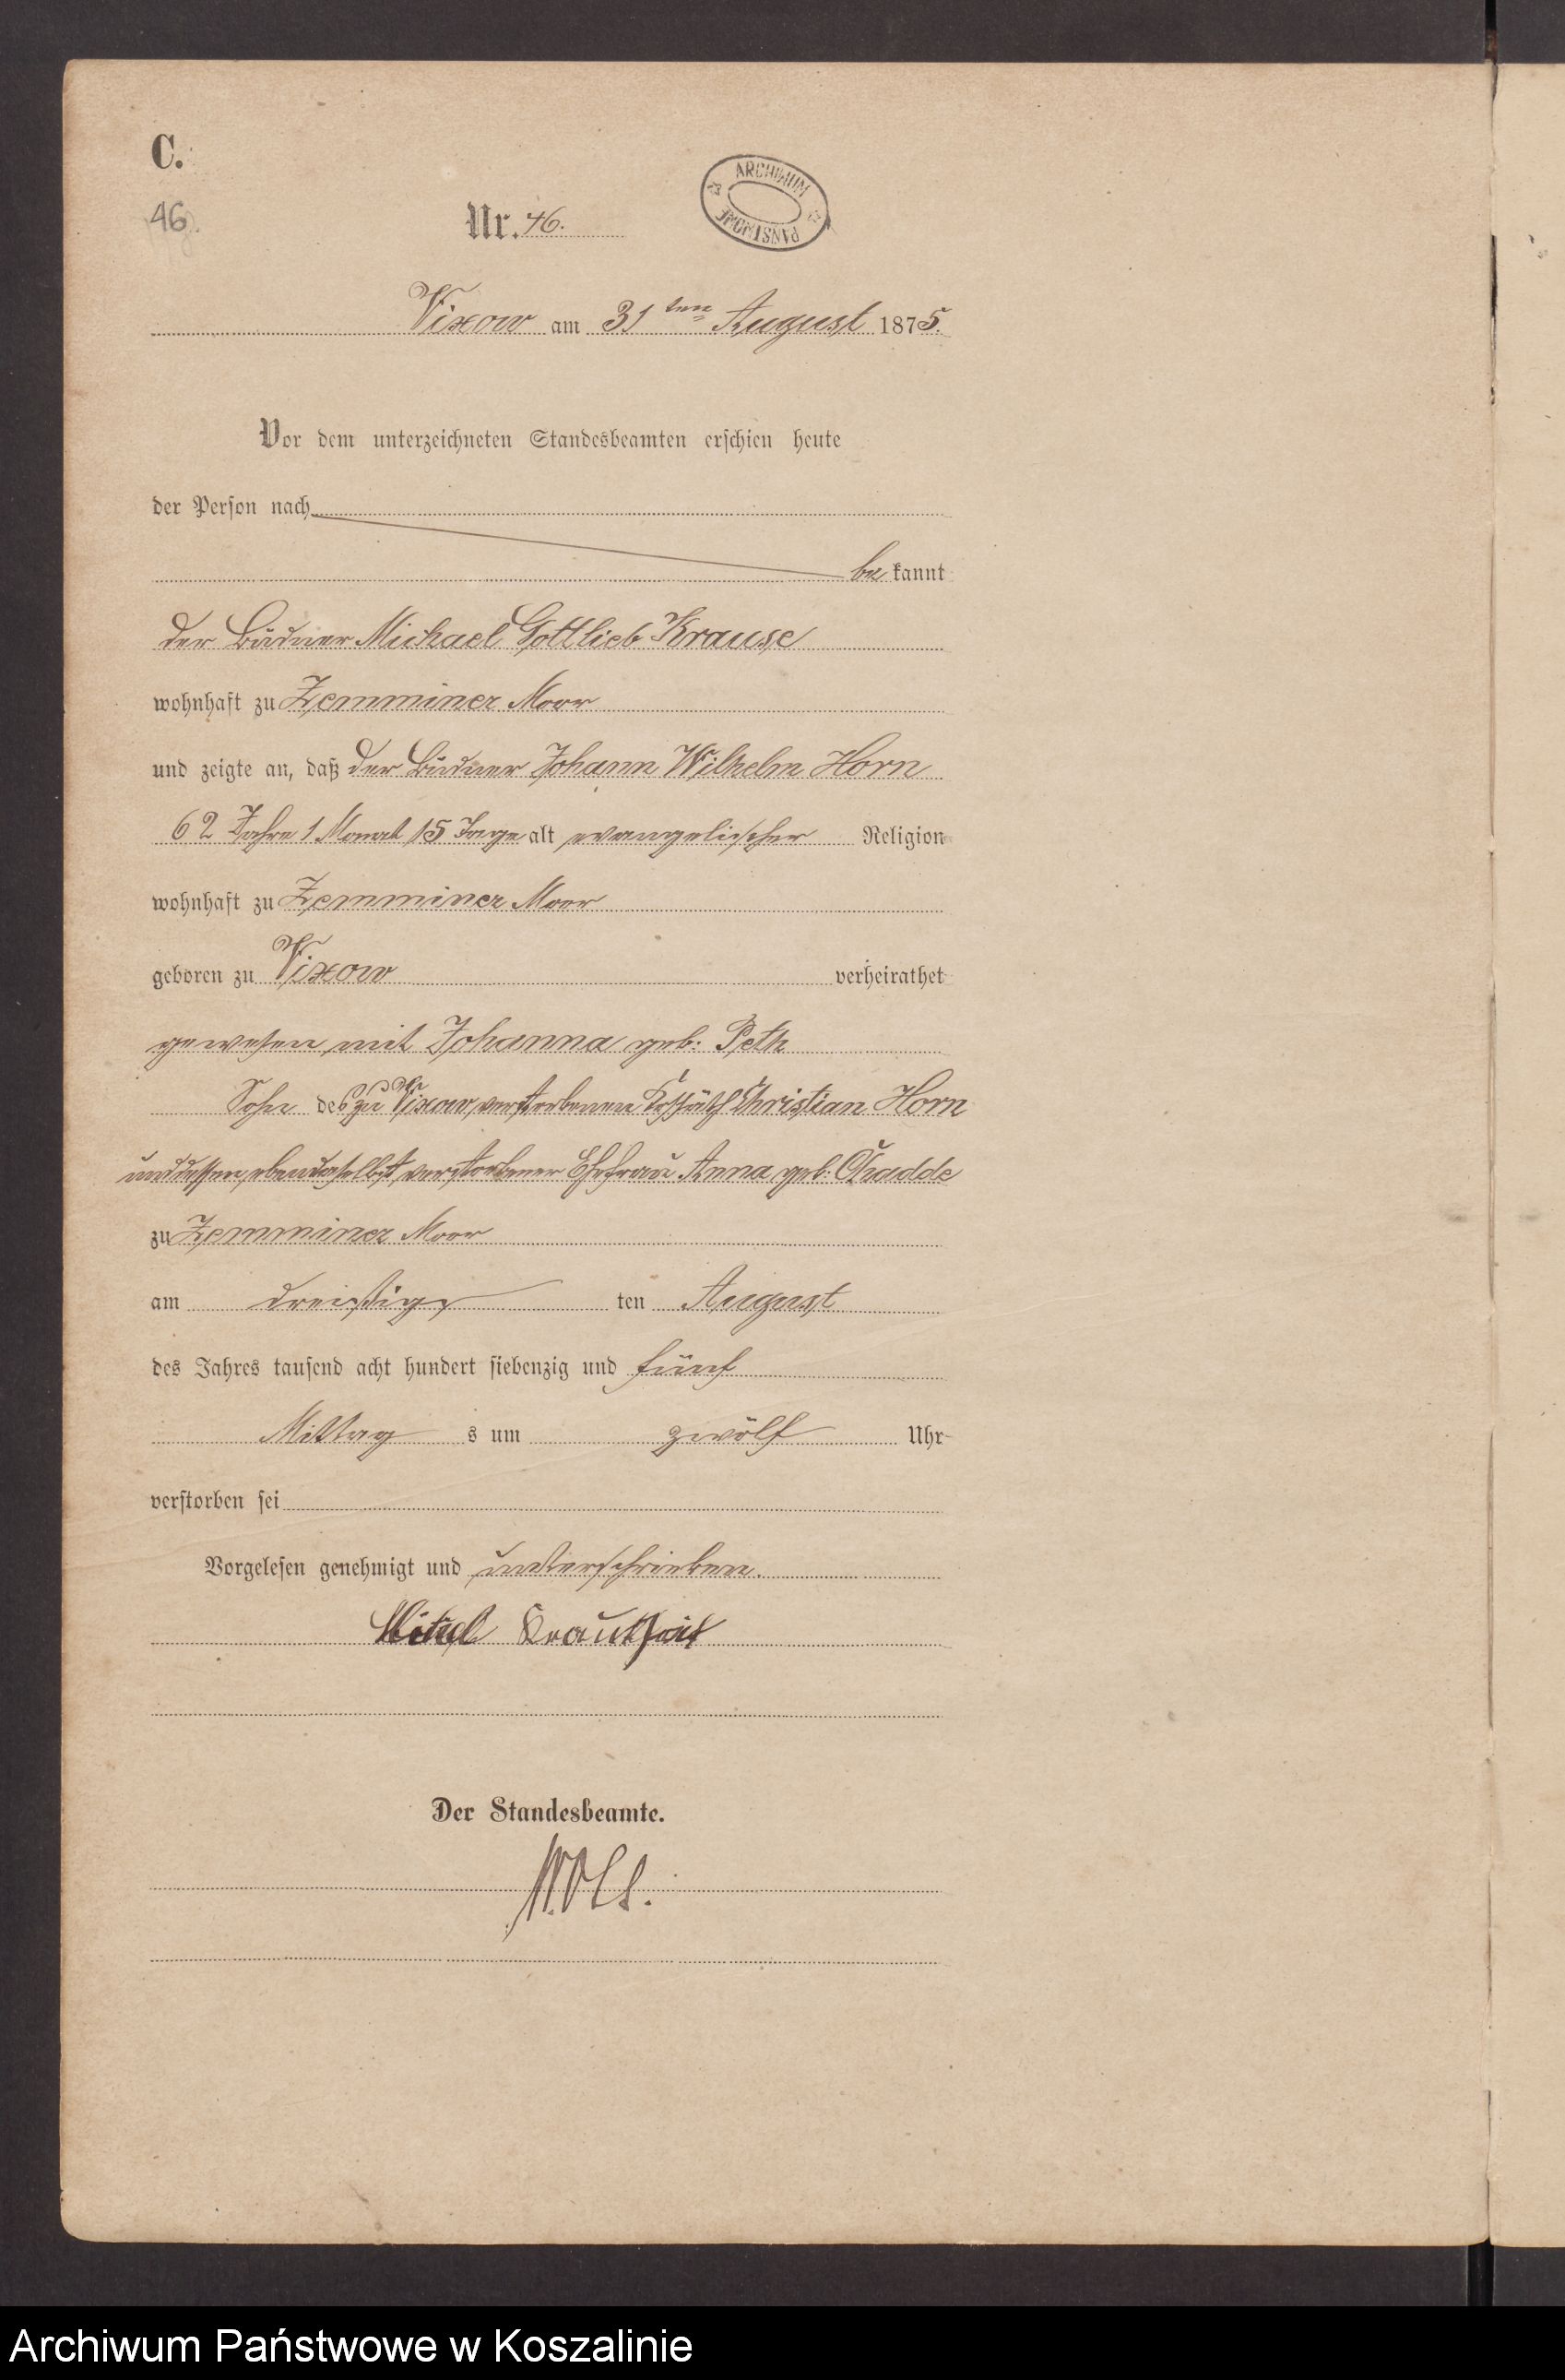 C.
46.
Nr. 46.
ARCHIWUM PAŃSTWOWE
Vixow am 31ten August 1875.
Vor dem unterzeichneten Standesbeamten erschien heute
der Person nach
be kannt
der Büdner Michael Gottlieb Krause
wohnhaft zu Zemminer Moor
und zeigte an, daß der Büdner Johann Wilhelm Horn
62 Jahre 1 Monat 15 Tage alt evangelischer Religion
wohnhaft zu Zemminer Moor
geboren zu Vixow verheirathet
gewesen mit Johanna geb: Peth
Sohn des zu Vixow verstorbenen Kossäth Christian Horn
und dessen ebendaselbst verstorbener Ehefrau Anna geb:
zu Zemminer Moor
am dreißigs ten August
des Jahres tausend acht hundert siebenzig und fünf
Mittag s um zwölf Uhr
verstorben sei
Vorgelesen genehmigt und unterschrieben.
Der Standesbeamte.
Archiwum Państwowe w Koszalinie